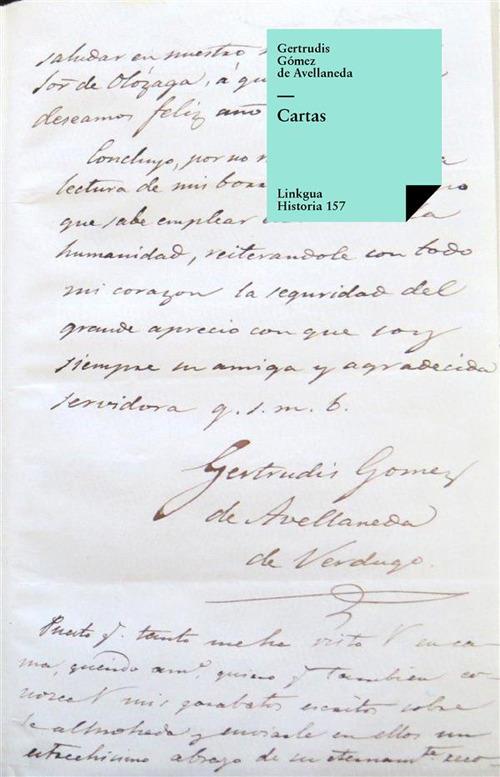 Gertrudis
Gómez
de Avellaneda
—
Cartas
Linkgua
Historia 157
saludar en nuestro
Sor de Olózaga, á qu
deseamos feliz año
Concluyo, por no
lectura de mis borr
que sabe emplear la
humanidad, reiterandole con todo
mi corazon la seguridad del
grande aprecio con que soy
siempre su amiga y agradecida
servidora q. s. m. b.
Gertrudis Gomez
de Avellaneda
de Verdugo.
Puesto q. tanto me ha visto V en ca-
ma, querido am.º, quiero q. tambien co-
nozca V mis garabatos escritos sobre
la almohada y enviarle en ellos un
estrechisimo abrazo de su